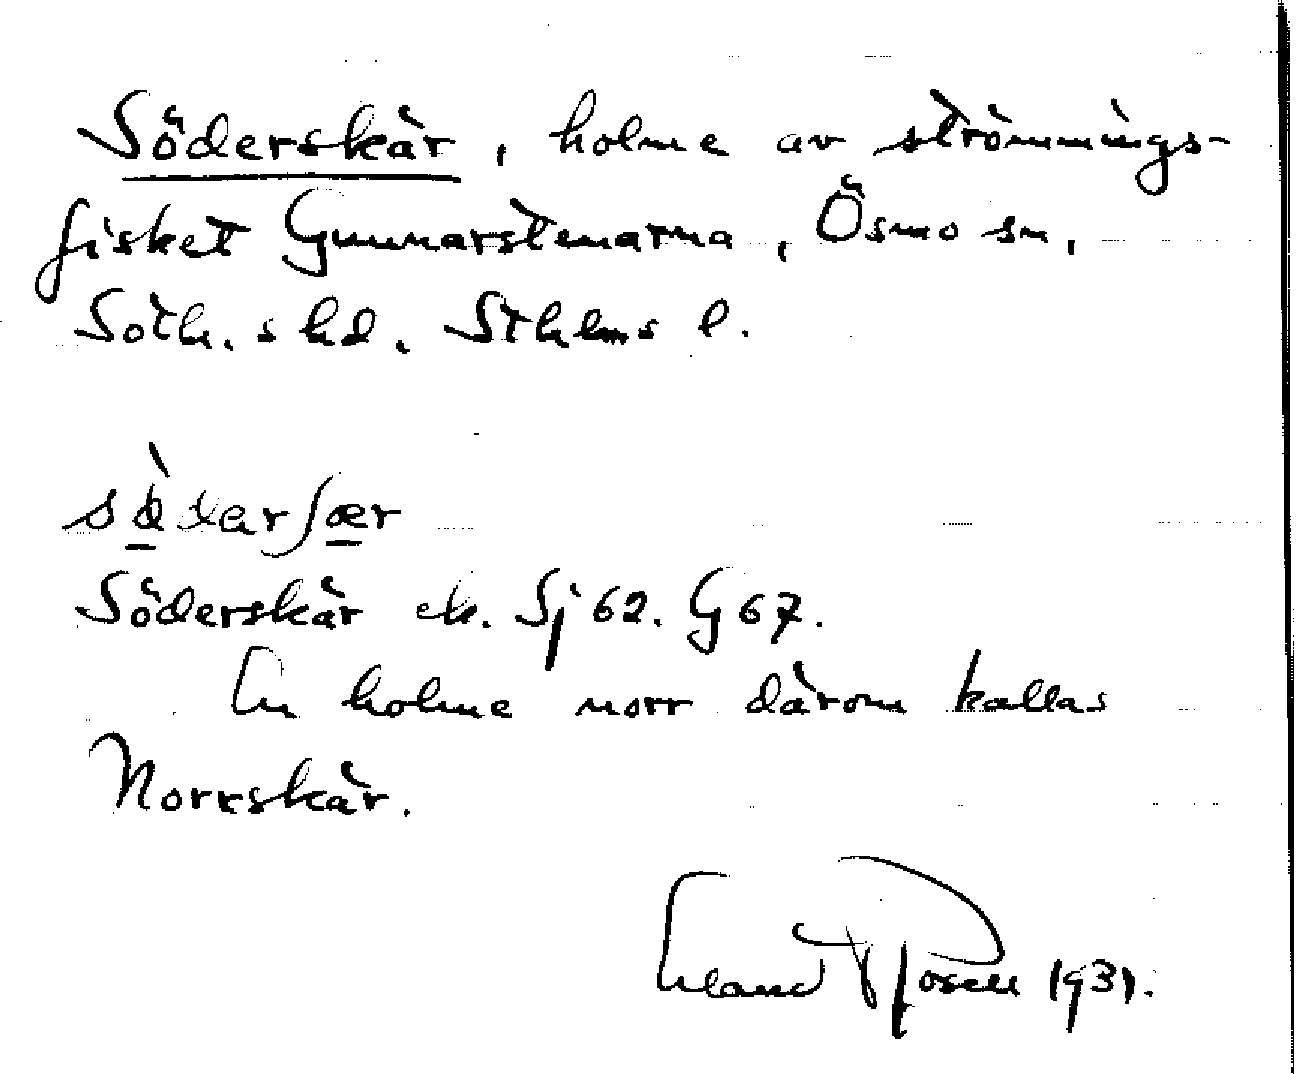 Söderskär, holme av strömmings-
fisket Gunnarstenarna, Ösmo sn,
Soth. s hd. Sthlms l.
Söderskär ek. Sj 62. G 67.
En holme norr därom kallas
Norrskär.
Erland Rosell 1931.